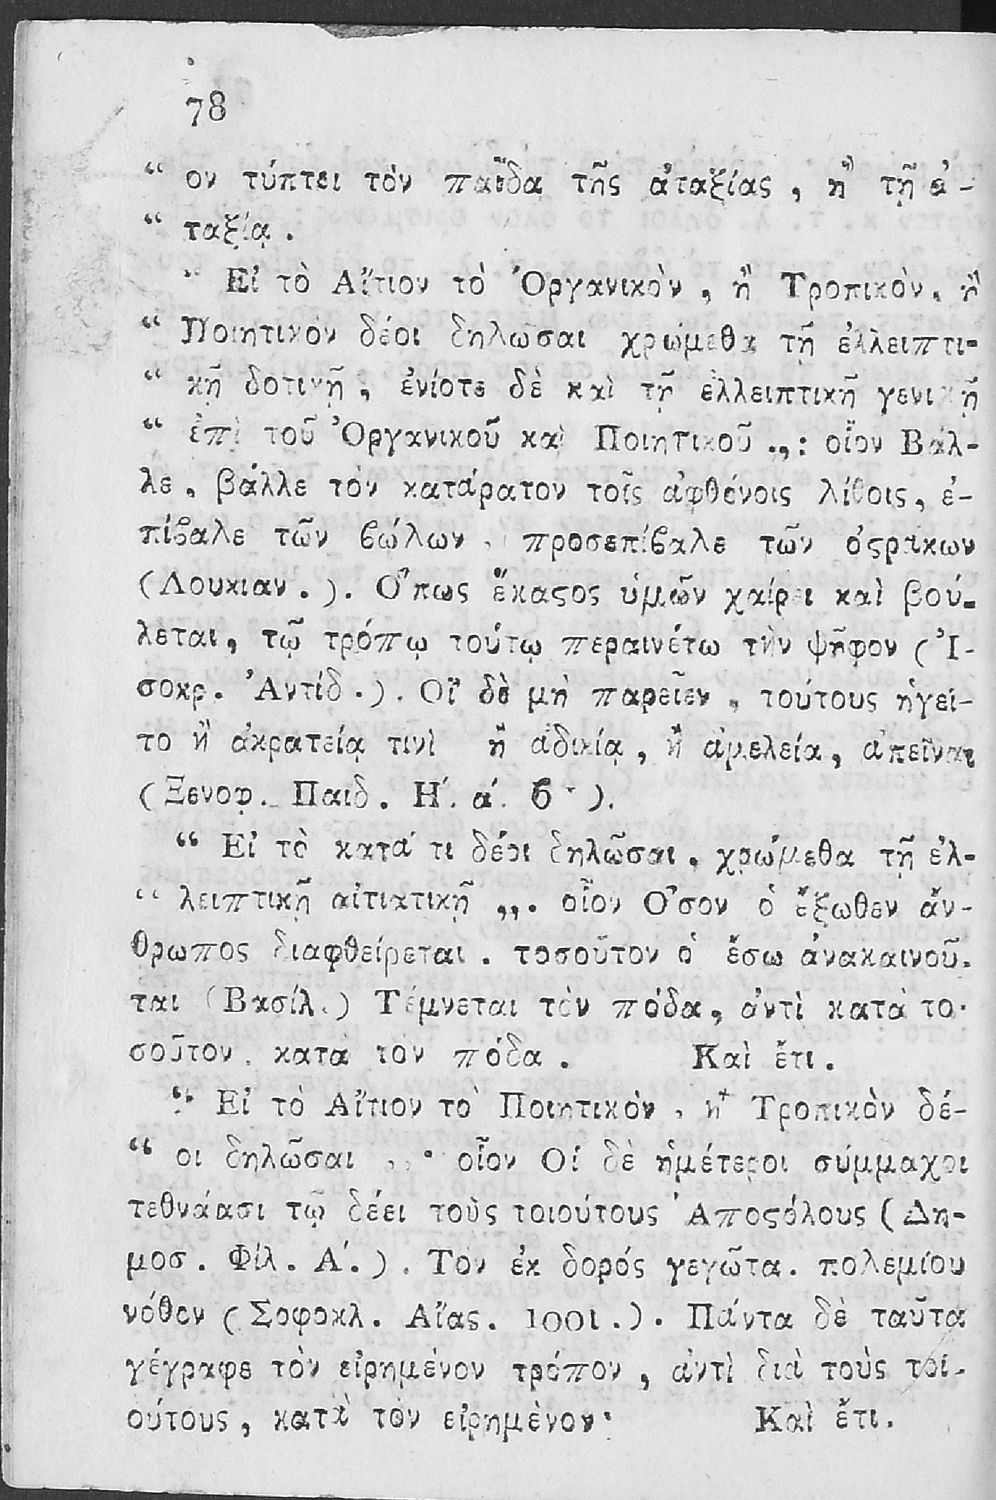 78
“ ον τύπτει τὸν παῖδα τῆς ἀταξίας, ἢ τῇ ἀ-
“ ταξίᾳ.
“ Εἰ τὸ Αἴτιον τὸ Ὀργανικὸν, ἢ Τροπικὸν, ἢ
“ Ποιητικὸν δέοι δηλῶσαι χρώμεθα τῇ ἐλλειπτι-
“ κῇ δοτικῇ, ἐνίοτε δὲ καὶ τῇ ἐλλειπτικῇ γενικῇ
“ ἐπὶ τοῦ Ὀργανικοῦ καὶ Ποιητικοῦ.,: οἷον Βάλ-
λε, βάλλε τὸν κατάρατον τοῖς ἀφθόνοις λίθοις, ἐ-
πίβαλε τῶν βώλων, προσεπίβαλε τῶν ὀϛράκων
(Λουκιαν.). Ὅπως ἕκαϛος ὑμῶν χαίρει καὶ βού-
λεται, τῷ τρόπῳ τούτῳ περαινέτω τὴν ψῆφον (Ἰ-
σοκρ. Ἀντίδ.). Οἳ δὲ μὴ παρεῖεν, τούτους ἡγεῖ-
το ἢ ἀκρατείᾳ τινὶ ἢ ἀδικίᾳ, ἢ ἀμελείᾳ, ἀπεῖναι
(Ξενοφ. Παιδ. Η΄. α΄. 6.).
“ Εἰ τὸ κατά τι δέοι δηλῶσαι, χρώμεθα τῇ ἐλ-
“ λειπτικῇ αἰτιατικῇ ,,. οἷον Ὅσον ὁ ἔξωθεν ἄν-
θρωπος διαφθείρεται. τοσοῦτον ὁ ἔσω ἀνακαινοῦ-
ται (Βασίλ.) Τέμνεται τὸν πόδα, ἀντὶ κατὰ το-
σοῦτον, κατὰ τὸν πόδα. Καὶ ἔτι.
“ Εἰ τὸ Αἴτιον τὸ Ποιητικὸν, ἢ Τροπικὸν δέ-
“ οι δηλῶσαι ,,. οἷον Οἱ δὲ ἡμέτεροι σύμμαχοι
τεθνάασι τῷ δέει τοὺς τοιούτους Ἀποϛόλους (Δη-
μοσ. Φίλ. Α΄.). Τον ἐκ δορός γεγῶτα. πολεμίου
νόθον (Σοφοκλ. Αἴας. 1001.). Πάντα δὲ ταῦτα
γέγραφε τὸν εἰρημένον τρόπον, ἀντὶ διὰ τοὺς τοι-
ούτους, κατὰ τὸν εἰρημένον. Καὶ ἔτι.